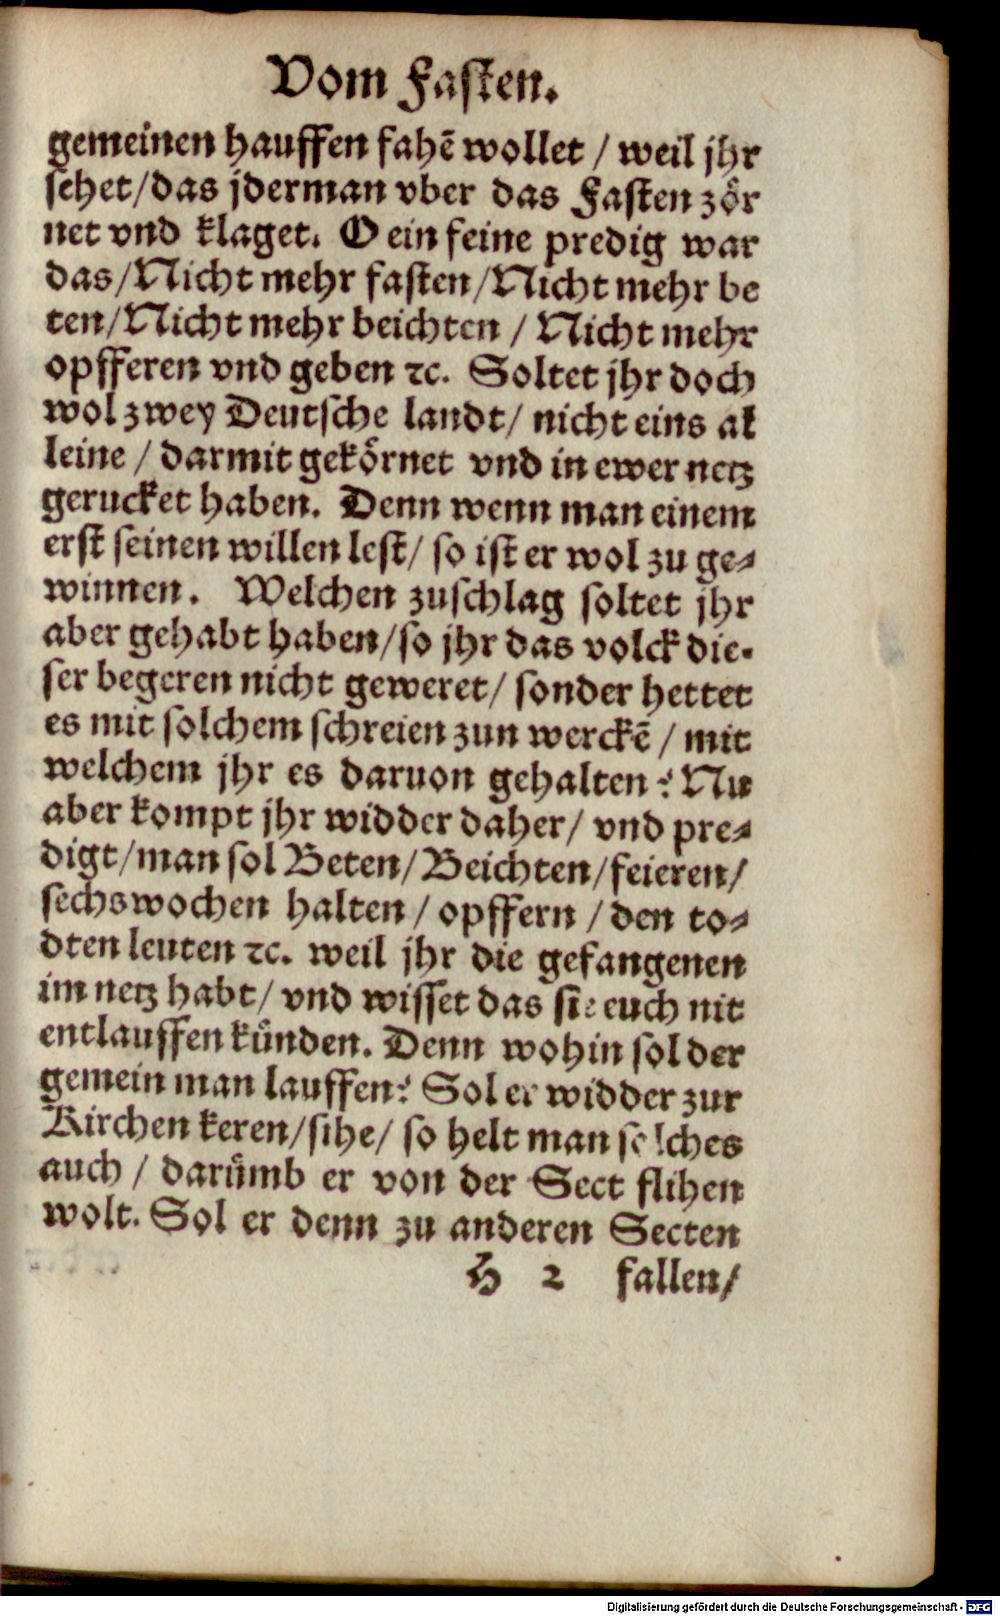 Vom Fasten.
gemeinen hauffen fahẽ wollet / weil jhr
sehet/das jderman vber das Fasten zör
net vnd klaget. O ein feine predig war
das/Nicht mehr fasten/Nicht mehr be
ten/Nicht mehr beichten / Nicht mehr
opfferen vnd geben ꝛc. Soltet jhr doch
wol zwey Deutsche landt/ nicht eins al
leine / darmit gekörnet vnd in ewer netz
gerucket haben. Denn wenn man einem
erst seinen willen lest/ so ist er wol zu ge⸗
winnen. Welchen zuschlag soltet jhr
aber gehabt haben/so jhr das volck die⸗
ser begeren nicht geweret/ sonder hettet
es mit solchem schreien zun werckẽ / mit
welchem jhr es daruon gehalten? Nu
aber kompt jhr widder daher/ vnd pre⸗
digt/man sol Beten/Beichten/feieren/
sechswochen halten / opffern / den to⸗
dten leuten ꝛc. weil jhr die gefangenen
im netz habt/ vnd wisset das sie euch nit
entlauffen künden. Denn wohin sol der
gemein man lauffen? Sol er widder zur
Kirchen keren/sihe/ so helt man solches
auch / darümb er von der Sect flihen
wolt. Sol er denn zu anderen Secten
H 2 fallen/
Digitalisierung gefördert durch die Deutsche Forschungsgemeinschaft - DFG